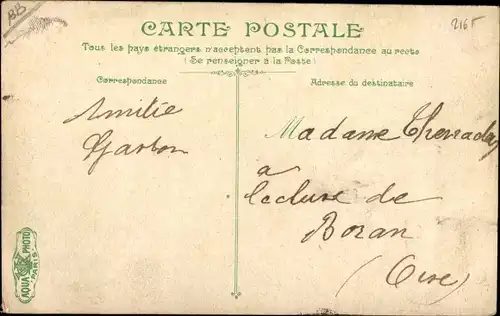 BB
216F
CARTE POSTALE
Tous les pays étrangers n'acceptent pas la Correspondance au recto
(Se renseigner à la Poste)
Correspondance
Adresse du destinataire
Amitié
Gaston
Madame
a
lecluse de
Boran
(Oise)
AQUA PHOTO
PARIS